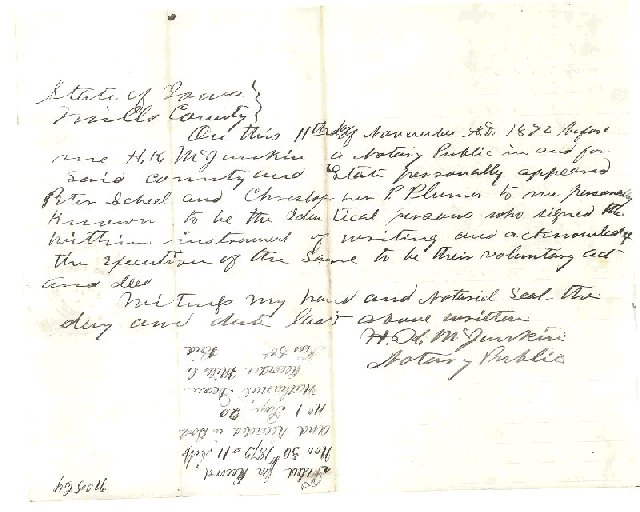 State of Iowa }
Mills County }
On this 11th day November A.D. 1872 before
me H.K. McJunkin a Notary Public in and for
said county and State personally appeared
Peter Scheel and P. Plumer to me personally
Known to be the Identical persons who signed the
within instrument of writing and acknowledge
the execution of the same to be their voluntary act
and deed
Witness my hand and Notarial Seal the
day and date last above written
H.K. McJunkin
Notary Public
Filed for Record
Nov 30th 1872 at 11
and Recorded in Book
No 1 Page
Recorder Mills Co